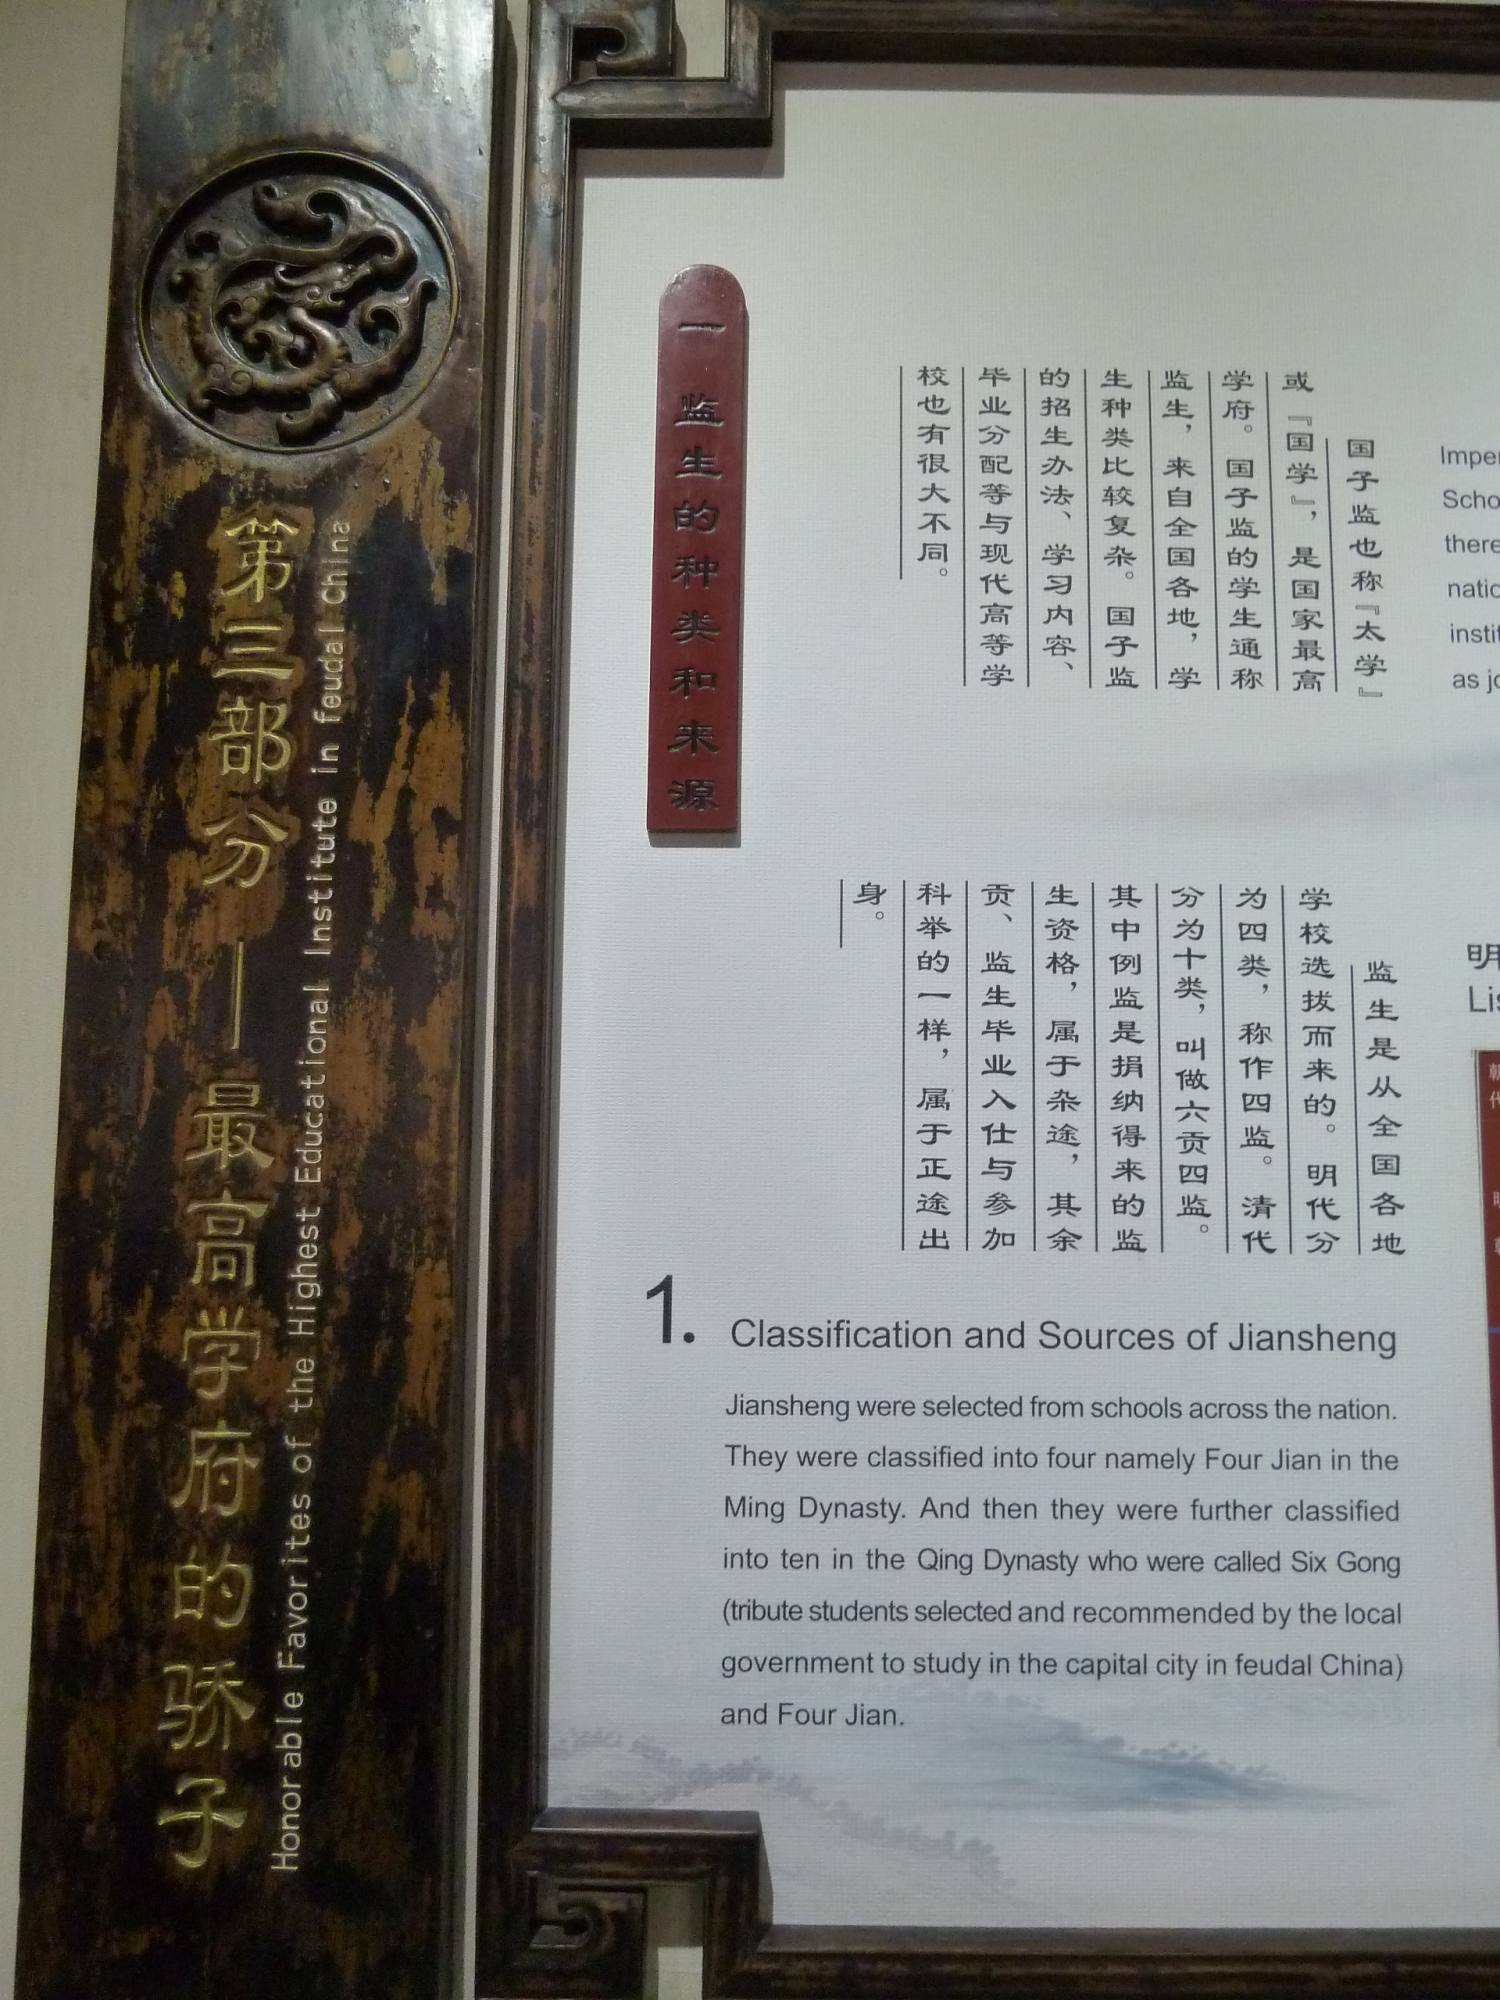 第三部分—最高学府的骄子
Honorable Favorites of the Highest Educational Institute in feudal China
一 监生的种类和来源
国子监也称『太学』
或『国学』，是国家最高
学府。国子监的学生通称
监生，来自全国各地，学
生种类比较复杂。国子监
的招生办法、学习内容、
毕业分配等与现代高等学
校也有很大不同。
监生是从全国各地
学校选拔而来的。明代分
为四类，称作四监。清代
分为十类，叫做六贡四监。
其中例监是捐纳得来的监
生资格，属于杂途，其余
贡、监生毕业入仕与参加
科举的一样，属于正途出
身。
1. Classification and Sources of Jiansheng
Jiansheng were selected from schools across the nation.
They were classified into four namely Four Jian in the
Ming Dynasty. And then they were further classified
into ten in the Qing Dynasty who were called Six Gong
(tribute students selected and recommended by the local
government to study in the capital city in feudal China)
and Four Jian.
Imper
Scho
there
natio
instit
as jo
明
Lis
朝
代